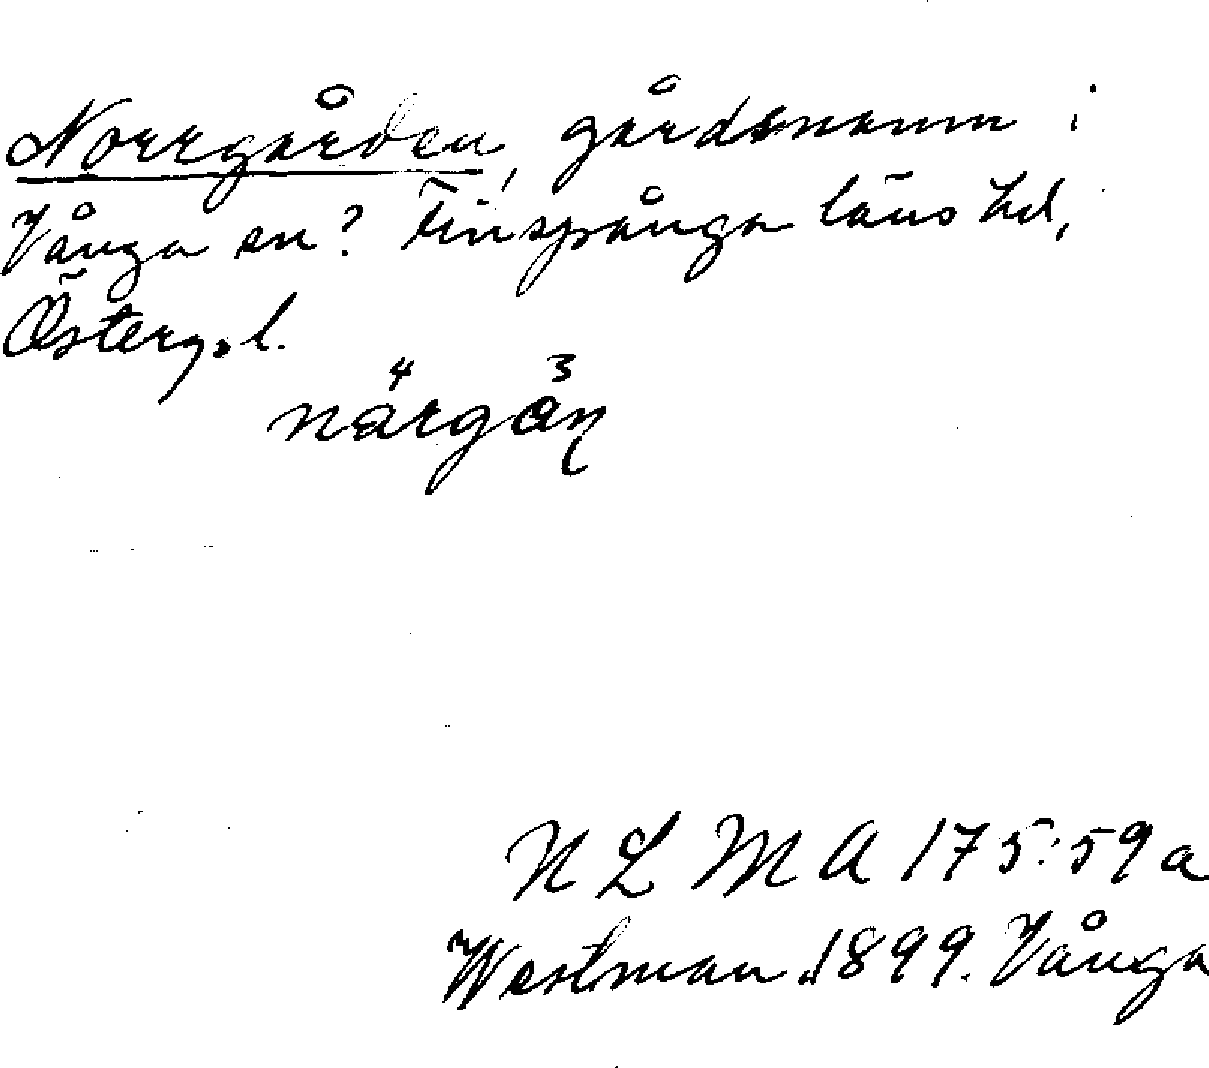 Norrgården, gårdsnamn i
Vånga sn? Finspånga läns hd,
Österg. l.
4 3
närgån
N L M A 175:59a
Westman 1899. Vånga